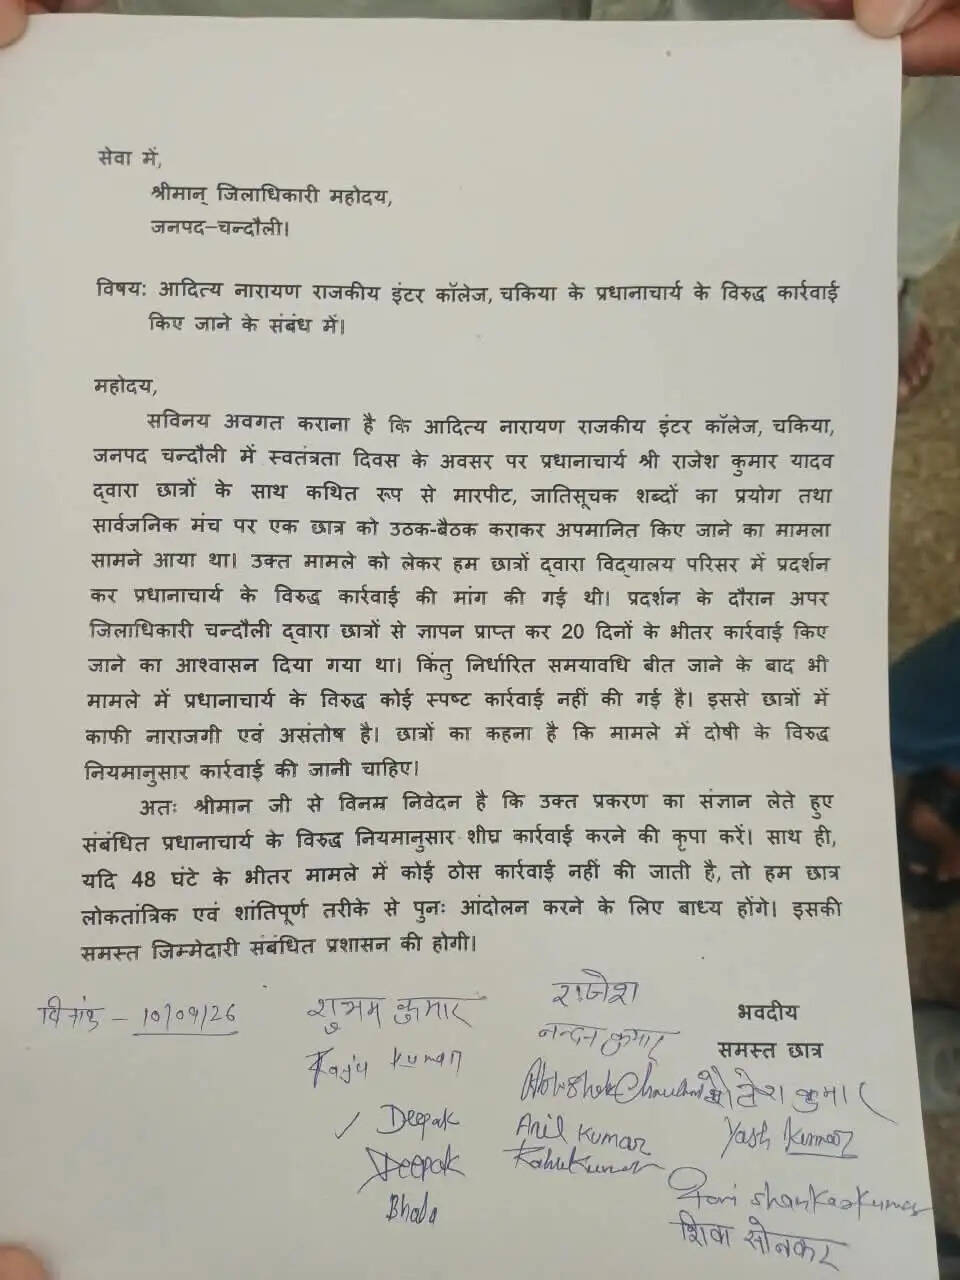 सेवा में,
श्रीमान् जिलाधिकारी महोदय,
जनपद–चन्दौली।
विषय: आदित्य नारायण राजकीय इंटर कॉलेज, चकिया के प्रधानाचार्य के विरुद्ध कार्रवाई
किए जाने के संबंध में।
महोदय,
सविनय अवगत कराना है कि आदित्य नारायण राजकीय इंटर कॉलेज, चकिया,
जनपद चन्दौली में स्वतंत्रता दिवस के अवसर पर प्रधानाचार्य श्री राजेश कुमार यादव
द्वारा छात्रों के साथ कथित रूप से मारपीट, जातिसूचक शब्दों का प्रयोग तथा
सार्वजनिक मंच पर एक छात्र को उठक-बैठक कराकर अपमानित किए जाने का मामला
सामने आया था। उक्त मामले को लेकर हम छात्रों द्वारा विद्यालय परिसर में प्रदर्शन
कर प्रधानाचार्य के विरुद्ध कार्रवाई की मांग की गई थी। प्रदर्शन के दौरान अपर
जिलाधिकारी चन्दौली द्वारा छात्रों से ज्ञापन प्राप्त कर 20 दिनों के भीतर कार्रवाई किए
जाने का आश्वासन दिया गया था। किंतु निर्धारित समयावधि बीत जाने के बाद भी
मामले में प्रधानाचार्य के विरुद्ध कोई स्पष्ट कार्रवाई नहीं की गई है। इससे छात्रों में
काफी नाराजगी एवं असंतोष है। छात्रों का कहना है कि मामले में दोषी के विरुद्ध
नियमानुसार कार्रवाई की जानी चाहिए।
अतः श्रीमान जी से विनम्र निवेदन है कि उक्त प्रकरण का संज्ञान लेते हुए
संबंधित प्रधानाचार्य के विरुद्ध नियमानुसार शीघ्र कार्रवाई करने की कृपा करें। साथ ही,
यदि 48 घंटे के भीतर मामले में कोई ठोस कार्रवाई नहीं की जाती है, तो हम छात्र
लोकतांत्रिक एवं शांतिपूर्ण तरीके से पुनः आंदोलन करने के लिए बाध्य होंगे। इसकी
समस्त जिम्मेदारी संबंधित प्रशासन की होगी।
दिनांक – 10/09/26
शुभम कुमार
राजेश
भवदीय
नन्दन कुमार
समस्त छात्र
Raju Kumar
Abhishek Chauhan
कुमार
Deepak
Anil Kumar
Yash Kumar
Deepak
Rahul Kumar
Bhola
Gori Shankar Kumar
शिवा सोनकर